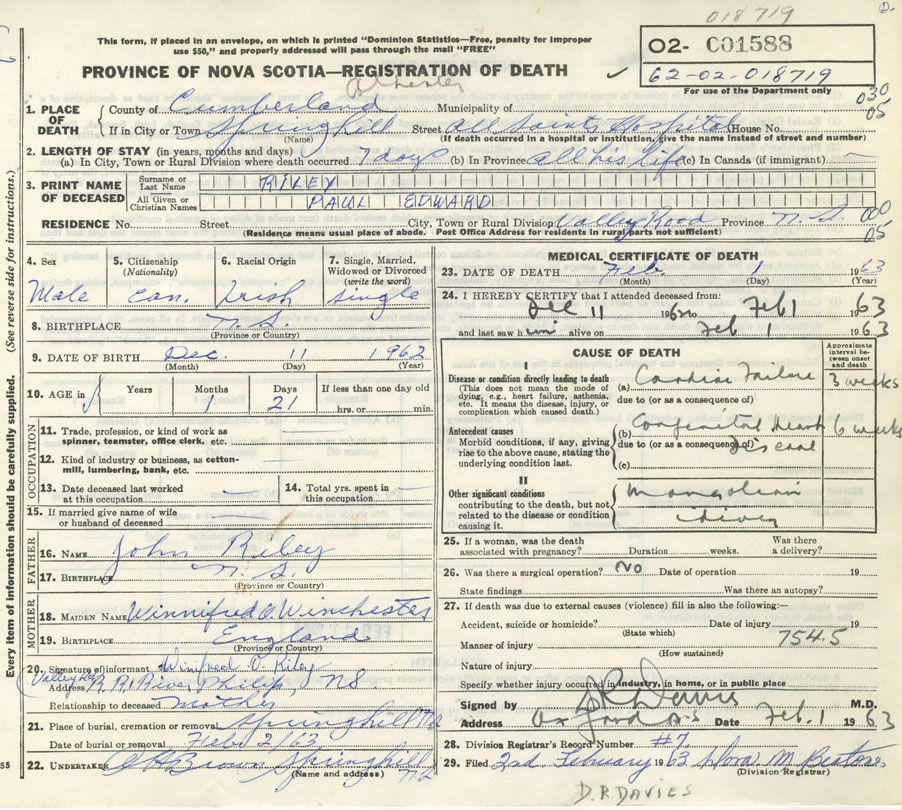 018719
This form, if placed in an envelope, on which is printed "Dominion Statistics—Free, penalty for improper
use $50," and properly addressed will pass through the mail "FREE"
02- C01588
62-02-018719
For use of the Department only
PROVINCE OF NOVA SCOTIA—REGISTRATION OF DEATH
030
05
1. PLACE OF DEATH
County of Cumberland Municipality of
If in City or Town Springhill Street All Saints Hospital House No.
(Name) (If death occurred in a hospital or institution, give the name instead of street and number)
2. LENGTH OF STAY (in years, months and days)
(a) In City, Town or Rural Division where death occurred 7 days (b) In Province all his life (c) In Canada (if immigrant)
3. PRINT NAME OF DECEASED
Surname or Last Name RILEY
All Given or Christian Names PAUL EDWARD
RESIDENCE No. Street City, Town or Rural Division Valley Road Province N.S. 000
05
(Residence means usual place of abode. Post Office Address for residents in rural parts not sufficient)
4. Sex Male
5. Citizenship (Nationality) Can.
6. Racial Origin Irish
7. Single, Married, Widowed or Divorced (write the word) Single
8. BIRTHPLACE N.S.
(Province or Country)
9. DATE OF BIRTH Dec. 11 1962
(Month) (Day) (Year)
10. AGE in Years Months 1 Days 21 If less than one day old
hrs. or min.
OCCUPATION
11. Trade, profession, or kind of work as spinner, teamster, office clerk, etc.
12. Kind of industry or business, as cotton-mill, lumbering, bank, etc.
13. Date deceased last worked at this occupation
14. Total yrs. spent in this occupation
15. If married give name of wife or husband of deceased
FATHER
16. NAME John Riley
17. BIRTHPLACE N.S.
(Province or Country)
MOTHER
18. MAIDEN NAME Winnifred O. Winchester
19. BIRTHPLACE England
(Province or Country)
20. Signature of informant Winifred O. Riley
Valley Rd
Address R.R. River Philip NS.
Relationship to deceased mother
21. Place of burial, cremation or removal Springhill N.S.
Date of burial or removal Feb. 2/63
22. UNDERTAKER Brown Springhill N.S.
(Name and address)
MEDICAL CERTIFICATE OF DEATH
23. DATE OF DEATH Feb. 1 1963
(Month) (Day) (Year)
24. I HEREBY CERTIFY that I attended deceased from:
Dec 11 1962 to Feb 1 1963
and last saw him alive on Feb 1 1963
CAUSE OF DEATH
Approximate interval between onset and death
I
Disease or condition directly leading to death
(This does not mean the mode of dying, e.g., heart failure, asthenia, etc. It means the disease, injury, or complication which caused death.)
(a) Cardiac Failure 3 weeks
due to (or as a consequence of)
Antecedent causes
Morbid conditions, if any, giving rise to the above cause, stating the underlying condition last.
(b) Congenital heart 6 weeks
due to (or as consequence of) disease
(c)
II
Other significant conditions
contributing to the death, but not related to the disease or condition causing it.
Mongolian
25. If a woman, was the death associated with pregnancy? Duration weeks. Was there a delivery?
26. Was there a surgical operation? No Date of operation 19
State findings Was there an autopsy?
27. If death was due to external causes (violence) fill in also the following:—
Accident, suicide or homicide? Date of injury 19
(State which)
Manner of injury 754.5
(How sustained)
Nature of injury
Specify whether injury occurred in industry, in home, or in public place
Signed by D R Davies M.D.
Address Oxford N.S Date Feb. 1 1963
28. Division Registrar's Record Number #7
29. Filed 2nd. February 1963 M Beaton
(Division Registrar)
D.R. DAVIES
(See reverse side for instructions.)
Every item of information should be carefully supplied.
55